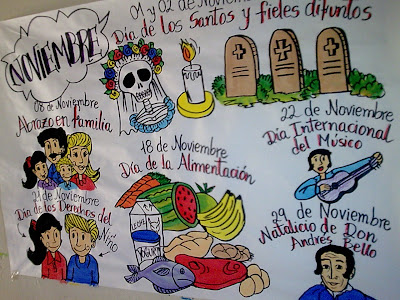 NOVIEMBRE
01 y 02 de Noviembre
Día de los Santos y fieles difuntos
08 de Noviembre
Abrazo en familia
18 de Noviembre
Día de la Alimentación
LECHE
22 de Noviembre
Día Internacional
del Músico
21 de Noviembre
Día de los Derechos del
Niño
29 de Noviembre
Natalicio de Don
Andrés Bello